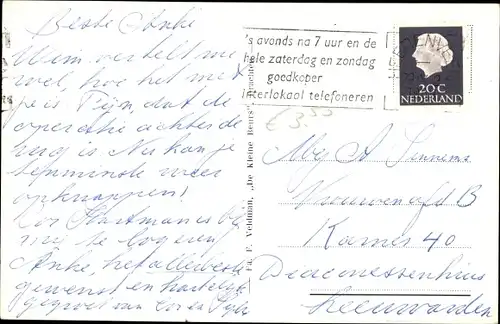 Beste Anke
Wim vertelde me
wel, hoe het met
je is. Fijn, dat de
operatie achter de
rug is. Nu kan je
tenminste weer
opknappen!
Cor Hartman is bij
mij te logeren
Anke, het allerbeste
gewenst en hartelijk
gegroet van Cor en
's avonds na 7 uur en de
hele zaterdag en zondag
goedkoper
interlokaal telefoneren
20 C
NEDERLAND
€ 3.55
Fa. F. Veldman, „De Kleine Beurs"
Mej A Sennema
Vrouwenafd B
Kamer 40
Diaconessenhuis
Leeuwarden